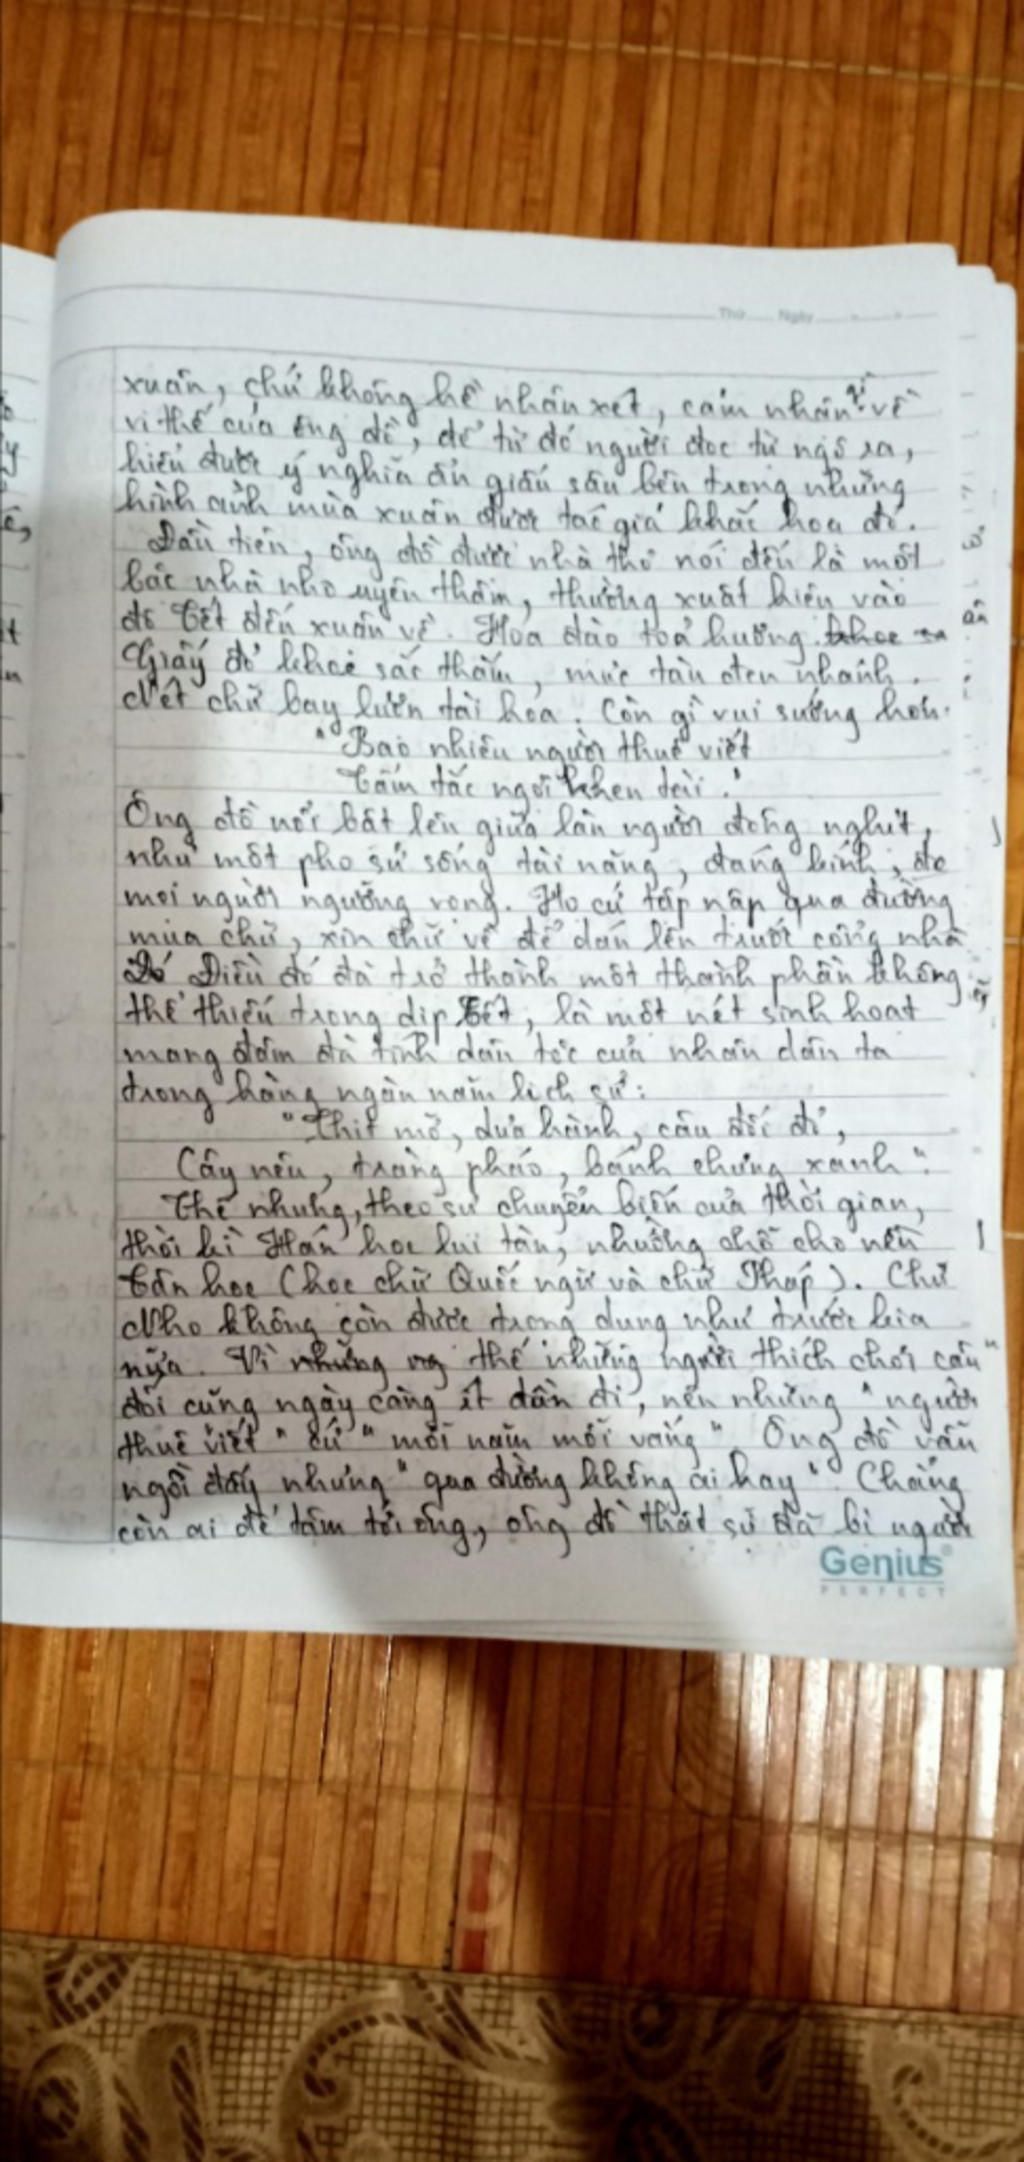 Thứ Ngày
xuân, chứ không hề nhận xét, cảm nhận gì về
vị thế của ông đồ, để từ đó người đọc tự ngộ ra,
hiểu được ý nghĩa ẩn giấu sâu bên trong những
hình ảnh mùa xuân được tác giả khắc họa đó.
Đầu tiên, ông đồ được nhà thơ nói đến là một
bác nhà nho uyên thâm, thường xuất hiện vào
độ Tết đến xuân về. Hoa đào toả hương.
Giấy đỏ khoe sắc thắm, mực tàu đen nhánh.
Nét chữ bay lượn tài hoa. Còn gì vui sướng hơn.
"Bao nhiêu người thuê viết
Tấm tắc ngợi khen tài."
Ông đồ nổi bật lên giữa làn người đông nghịt,
như một pho sử sống tài năng, đáng kính, để
mọi người ngưỡng vọng. Họ cứ tấp nập qua đường
mua chữ, xin chữ về để dán lên trước cổng nhà
Điều đó đã trở thành một thành phần không
thể thiếu trong dịp Tết, là một nét sinh hoạt
mang đậm đà tính dân tộc của nhân dân ta
trong hàng ngàn năm lịch sử:
"Thịt mỡ, dưa hành, câu đối đỏ,
Cây nêu, tràng pháo, bánh chưng xanh".
Thế nhưng, theo sự chuyển biến của thời gian,
thời kì Hán học lụi tàn, nhường chỗ cho nền
Tân học (học chữ Quốc ngữ và chữ Pháp). Chữ
Nho không còn được trọng dụng như trước kia
nữa. Vì thế những người thích chơi câu
đối cũng ngày càng ít dần đi, nên những "người
thuê viết" cứ "mỗi năm mỗi vắng". Ông đồ vẫn
ngồi đấy nhưng "qua đường không ai hay". Chẳng
còn ai để tâm tới ông, ông đồ thật sự đã bị người
Genius
PERFECT